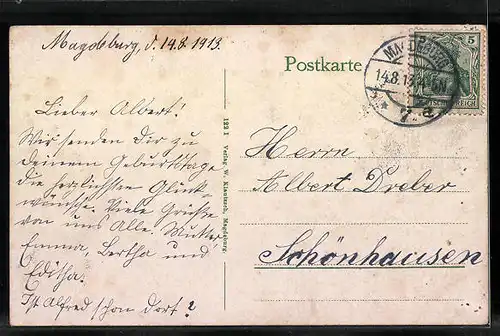 Magdeburg, d. 14.8.1913.
Postkarte
MAGDEBURG
14.8.13
5
DEUTSCHES REICH
Lieber Albert!
Wir senden dir zu
deinem Geburtstage
die herzlichsten Glück
wünsche. Viele Grüße
von uns Alle. Mutter
Emma, Bertha und
Editha.
Ist Alfred schon dort?
122 I Verlag W. Magdeburg.
Herrn
Albert Dreber
Schönhausen